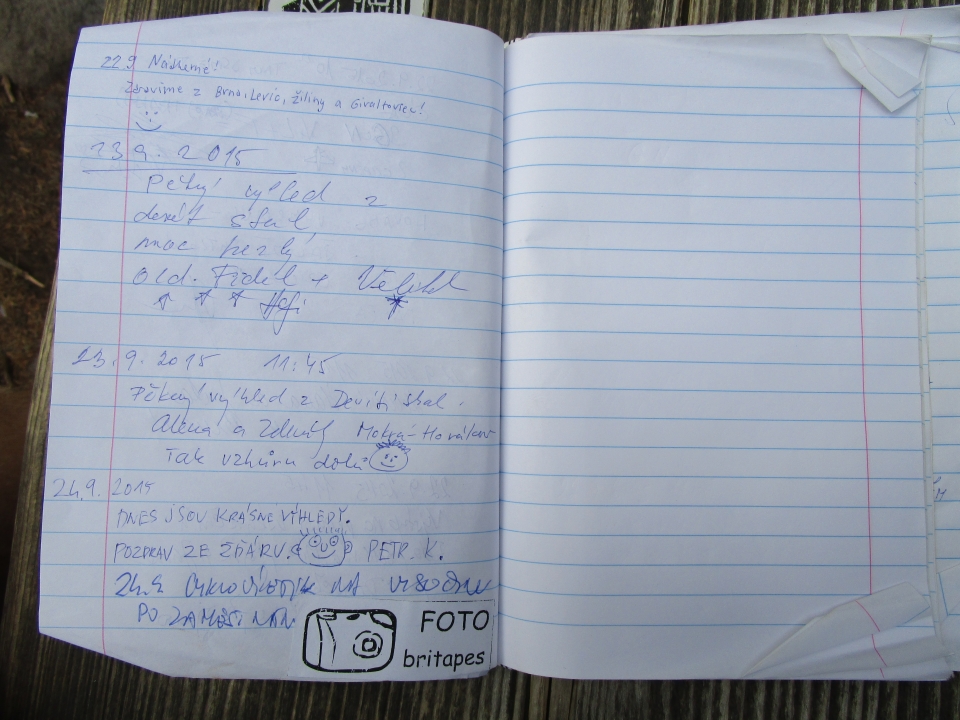 22.9 Nádherné!
Zdravíme z Brna, Levic, Žiliny a Givaltoviec!
23.9.2015
Pěkný výhled z
devět skal,
moc hezký
old.
23.9.2015 11:45
Pěkný výhled z Devíti skal.
Alena a Zdeněk Mokrá-Horákov
Tak vzhůru dolů
24.9. 2015
DNES JSOU KRÁSNÉ VÝHLEDY.
POZDRAV ZE ŽĎÁRU. PETR. K.
24.9 NA
PO ZAMĚSTNÁN
FOTO
britapes